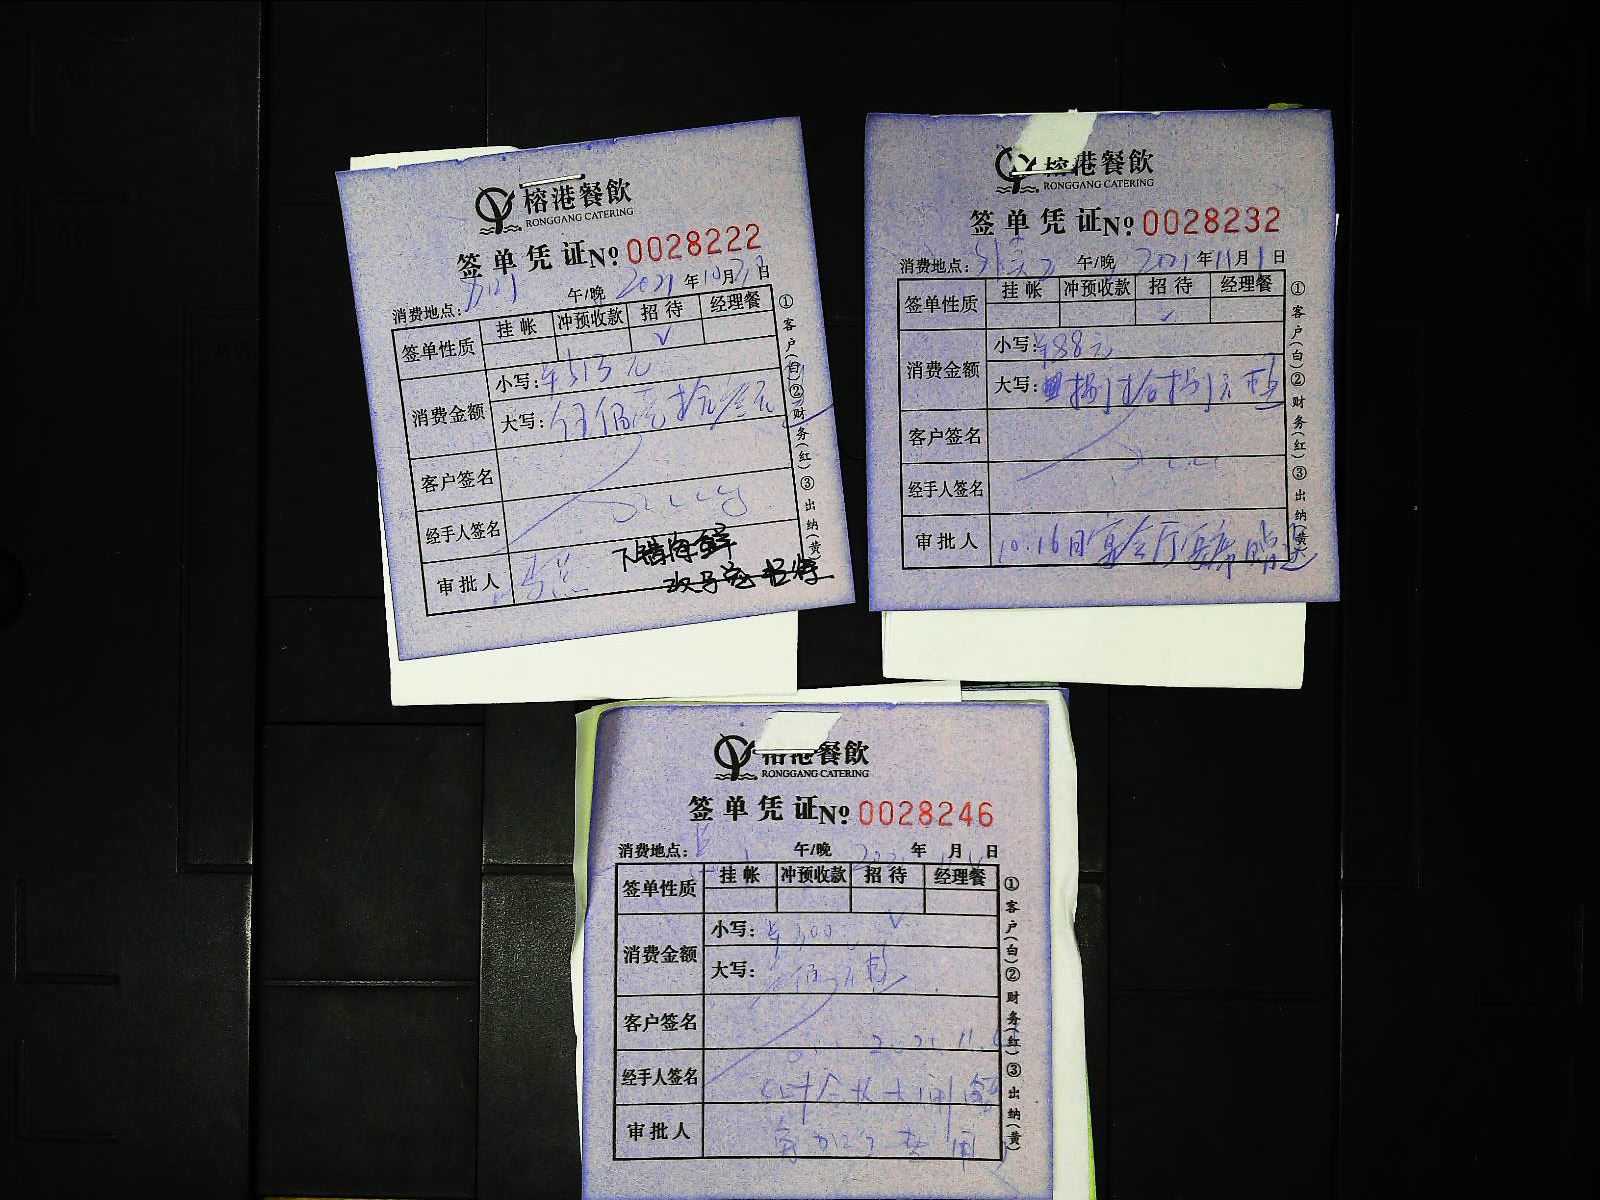 榕港餐飲
RONGGANG CATERING
签单凭证 № 0028222
消费地点: 午/晚 2021年10月 日
签单性质 挂帐 冲预收款 招待 经理餐
✓
消费金额 小写:¥513元
大写:伍佰壹拾叁元
客户签名
经手人签名
审批人
下错海鲜
①客户(白)②财务(红)③出纳(黄)
榕港餐飲
RONGGANG CATERING
签单凭证 № 0028232
消费地点: 午/晚 2021年11月1日
签单性质 挂帐 冲预收款 招待 经理餐
✓
消费金额 小写:¥88元
大写:捌拾捌元整
客户签名
经手人签名
审批人 10.16日宴会厅 席赠送
①客户(白)②财务(红)③出纳(黄)
榕港餐飲
RONGGANG CATERING
签单凭证 № 0028246
消费地点: 午/晚 年 月 日
签单性质 挂帐 冲预收款 招待 经理餐
✓
消费金额 小写:¥300
大写: 佰元整
客户签名
2021.11.
经手人签名
审批人
①客户(白)②财务(红)③出纳(黄)